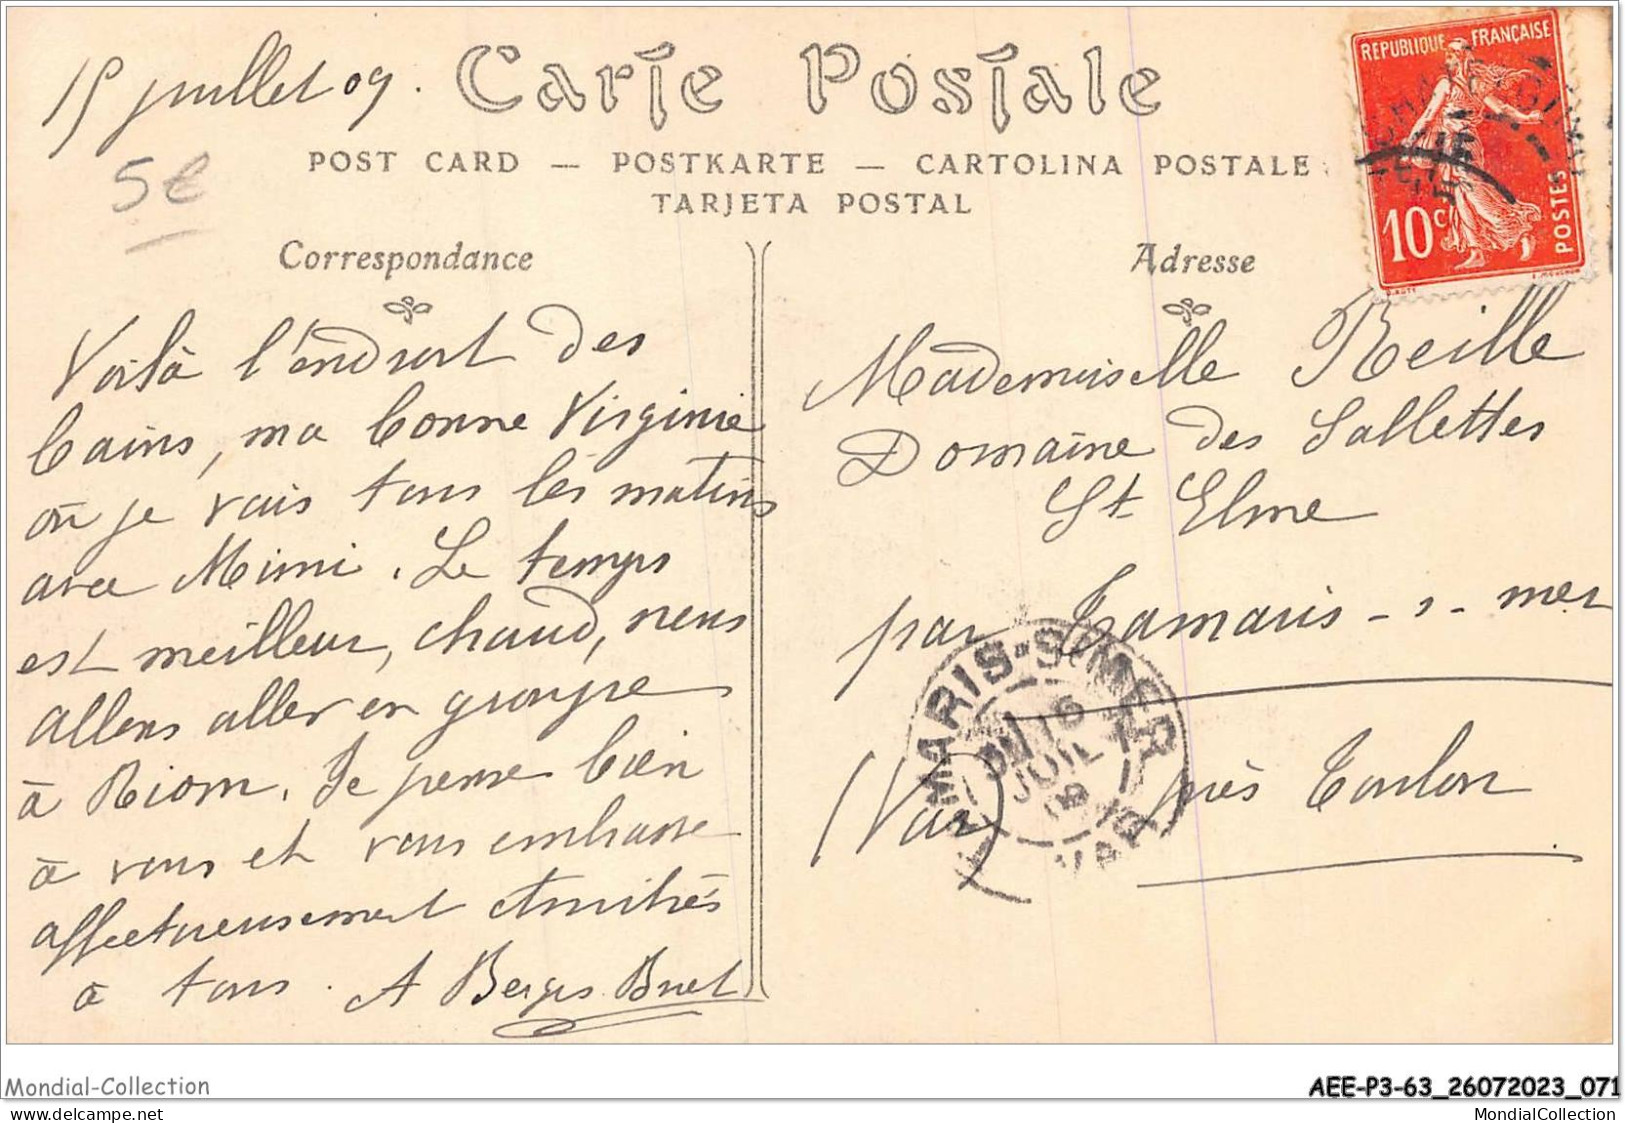 15 juillet 09.
Carte Postale
POST CARD — POSTKARTE — CARTOLINA POSTALE
TARJETA POSTAL
5€
REPUBLIQUE FRANÇAISE
10c
POSTES
Correspondance
Voilà l'endroit des
bains, ma bonne Virginie
où je vais tous les matins
avec Mimi. Le temps
est meilleur, chaud, nous
allons aller en groupe
à Riom. Je pense bien
à vous et vous embrasse
affectueusement Amitiés
à tous. A Berges Bruel
Adresse
Mademoiselle Reille
Domaine des Sallettes
St Elme
par Tamaris-s-mer
(Var) près Toulon
TAMARIS-S-MER
16
JUIL
09
VAR
Mondial-Collection
AEE-P3-63_26072023_071
delcampe.net
MondialCollection